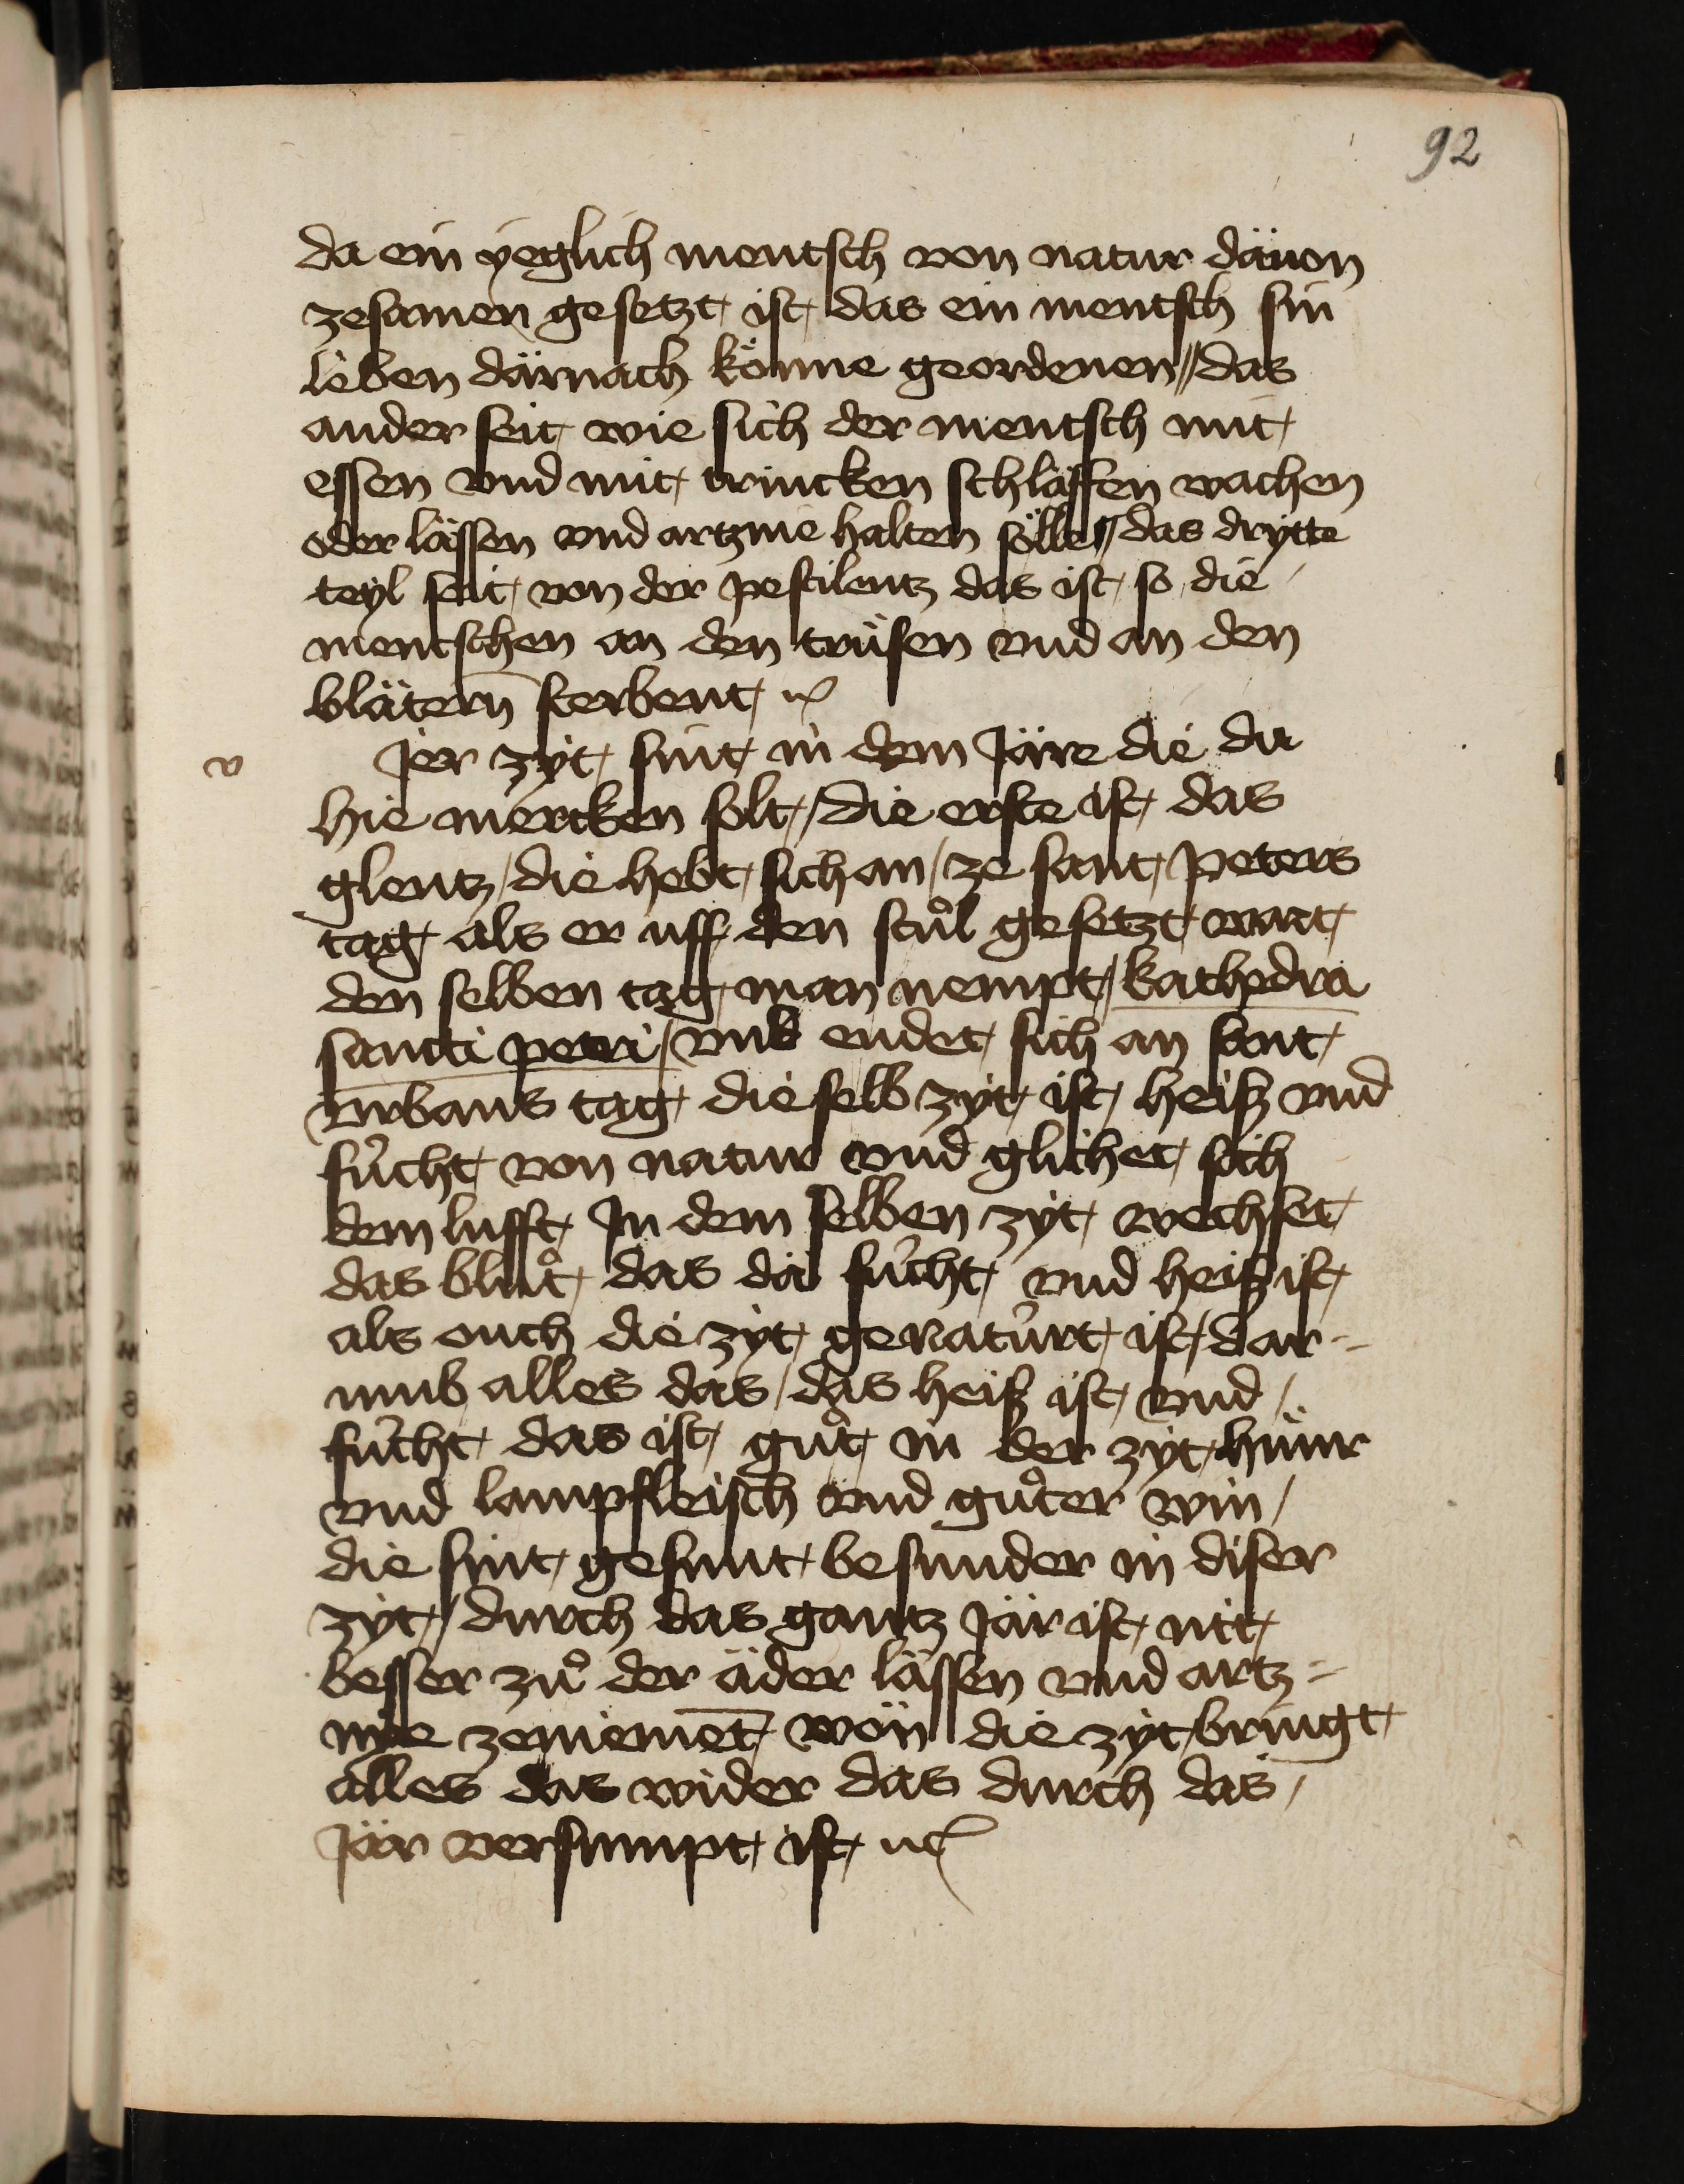 92
da ein yeglich mentsch von natur dăuon
zesamen gesetzt ist das ein mentsch sin
leben dărnach kŏnne geordenen // das
ander seit wie sich der mentsch mit
essen vnd mit trincken schlăffen wachen
oder lăssen vnd artznie halten sŏlle // das drytte
teyl seit von der pestilentz das ist so die
mentschen an den trüsen vnd an den
blătern̄ sterbent
v
Jer zyt sint in dem Jăre die du
hie mercken solt // die erste ist das
glentz / die hebt sich an / ze sant peters
tag als er uff den stůl gesetzt wart
den selben tag man nempt / kathedra
sancti petri / vnd endet sich an sant
vrbans tag die selb zyt ist heiß vnd
fücht von natur vnd glichet sich
dem lufft In dem selben zyt wechset
das blůt das dă fücht vnd heiß ist
als ouch die zyt genatürt ist / dar-
umb alles das / das heiß ist vnd /
fücht das ist gůt in der zyt hünr
vnd lampfleisch vnd gůter win /
die sint gesunt besunder in diser
zyt // durch das gantz Jăr ist nit
besser zů der ăder lăssen vnd artz-
nye zeniemēt wŏn die zyt bringt
alles das wider das durch das /
Jăr versumpt ist